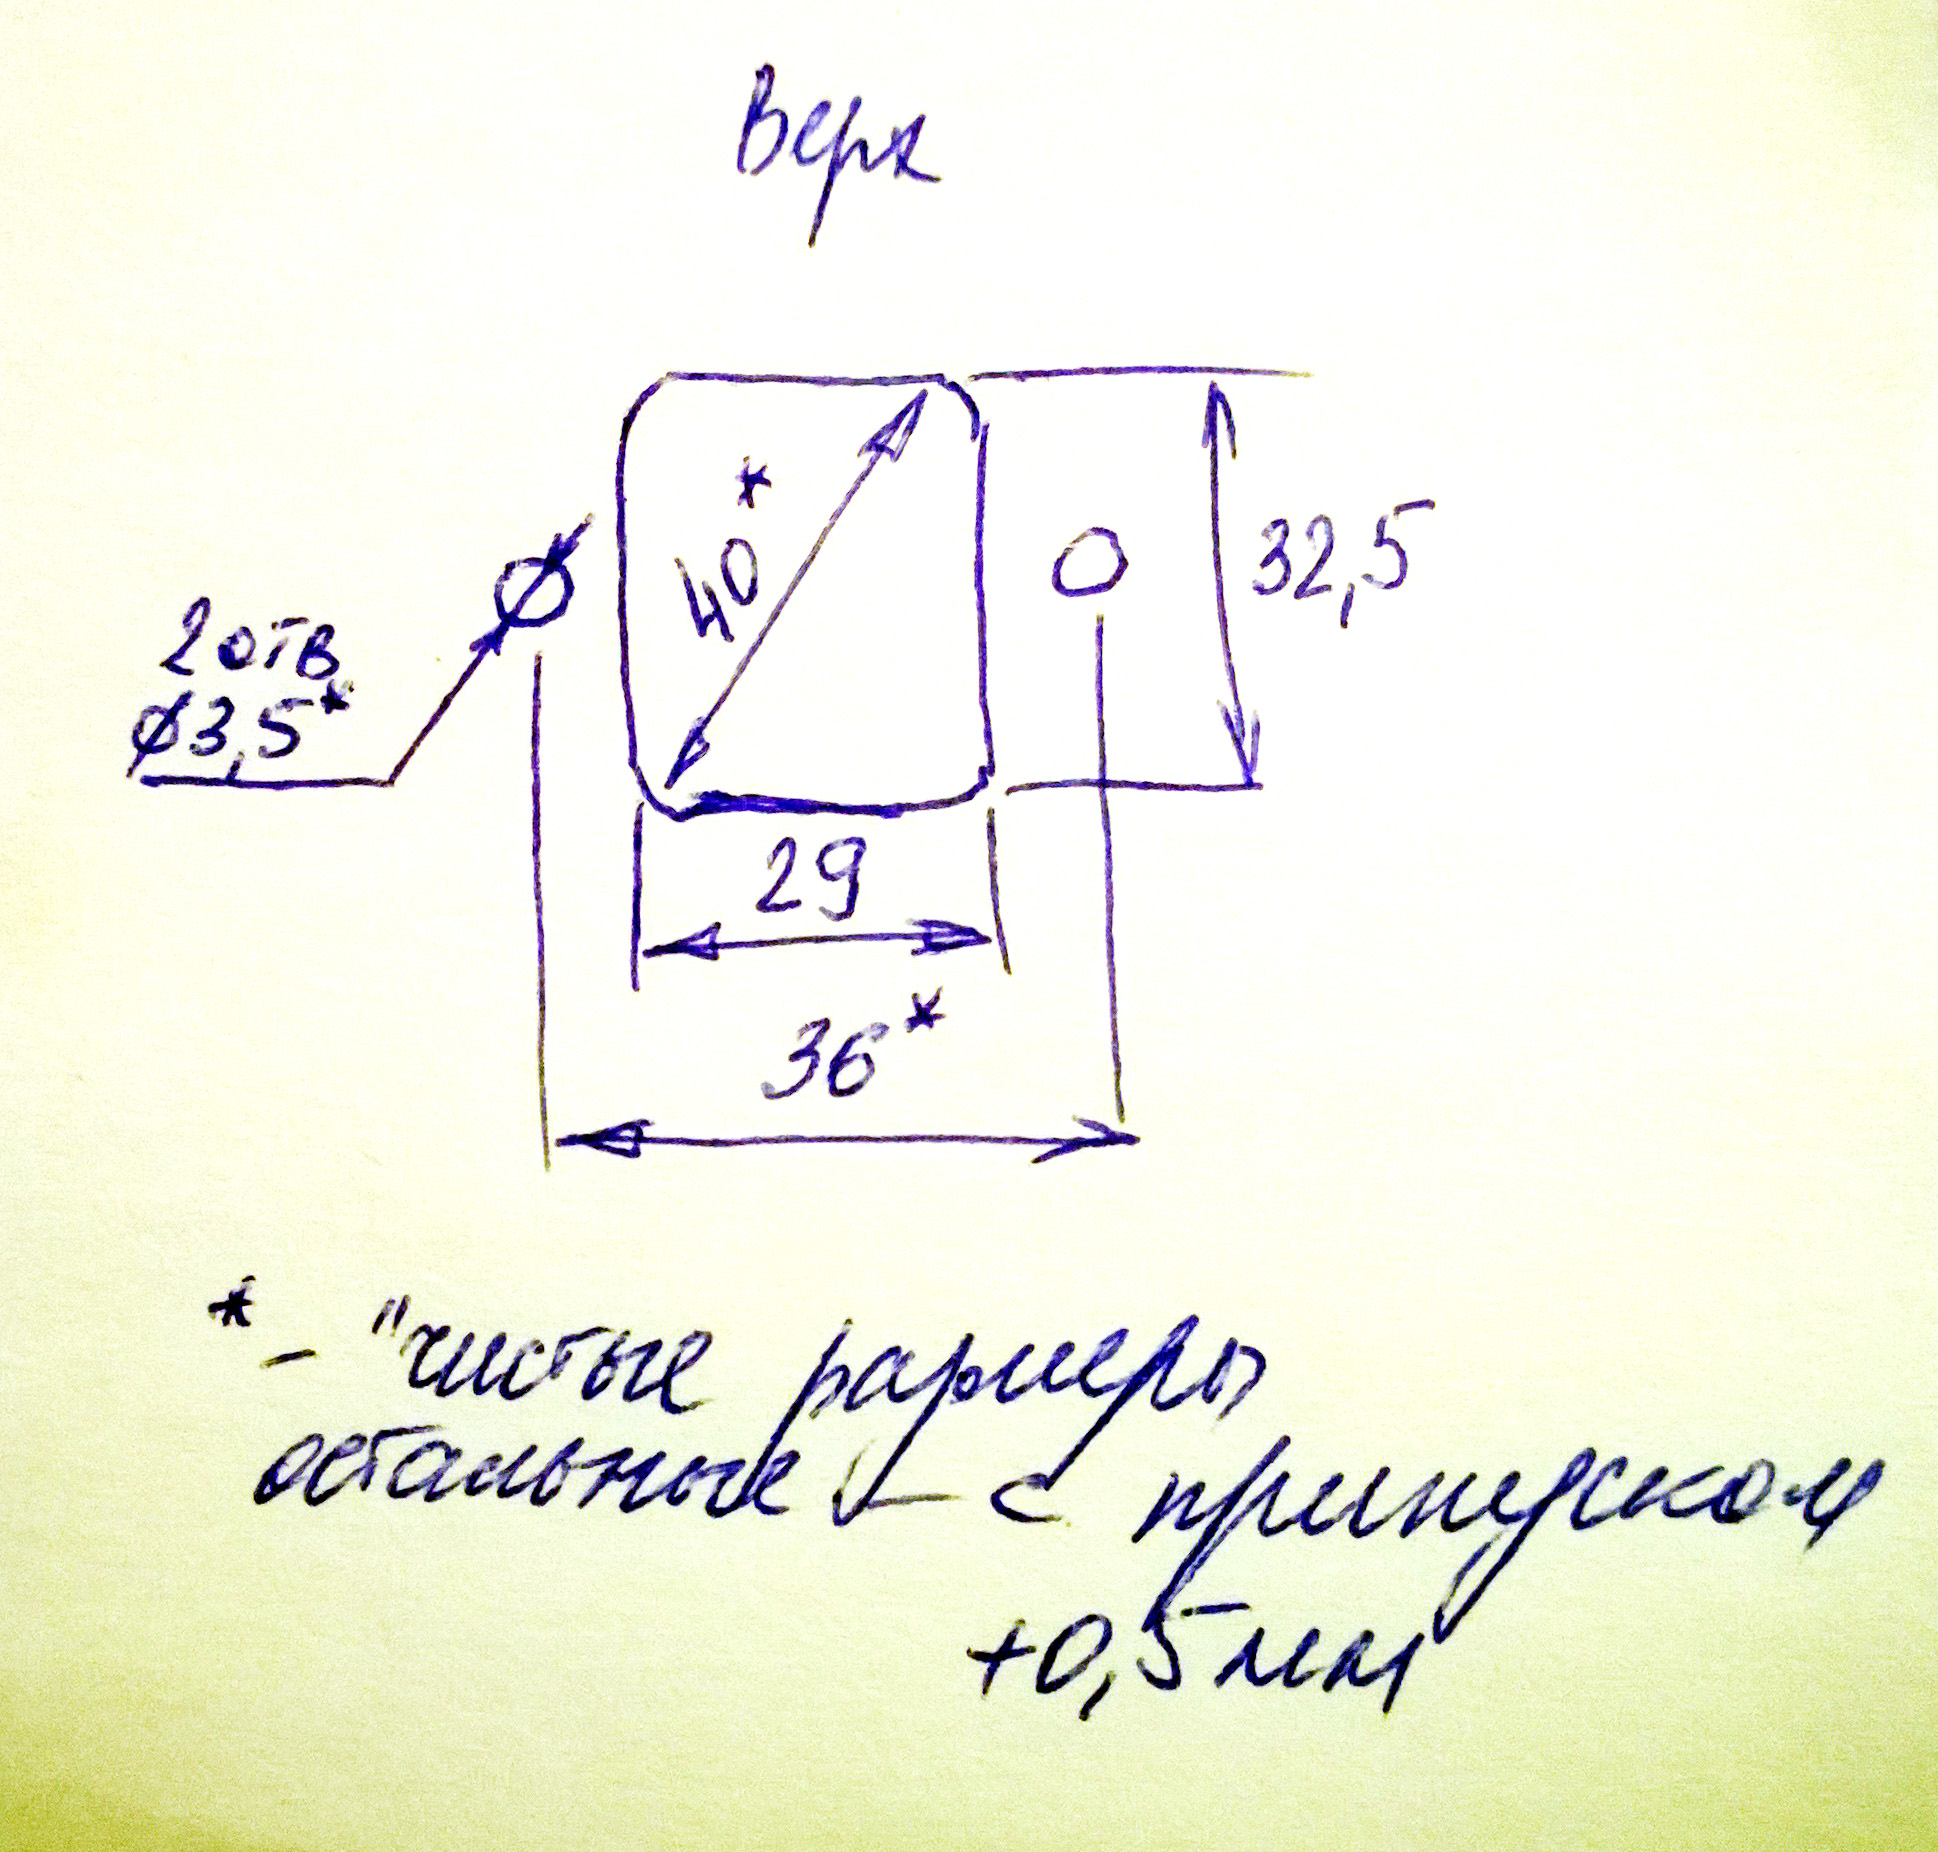 Верх
40*
32,5
2 отв
⌀3,5*
29
36*
* - "чистые размеры
остальные - с припуском
+0,5мм